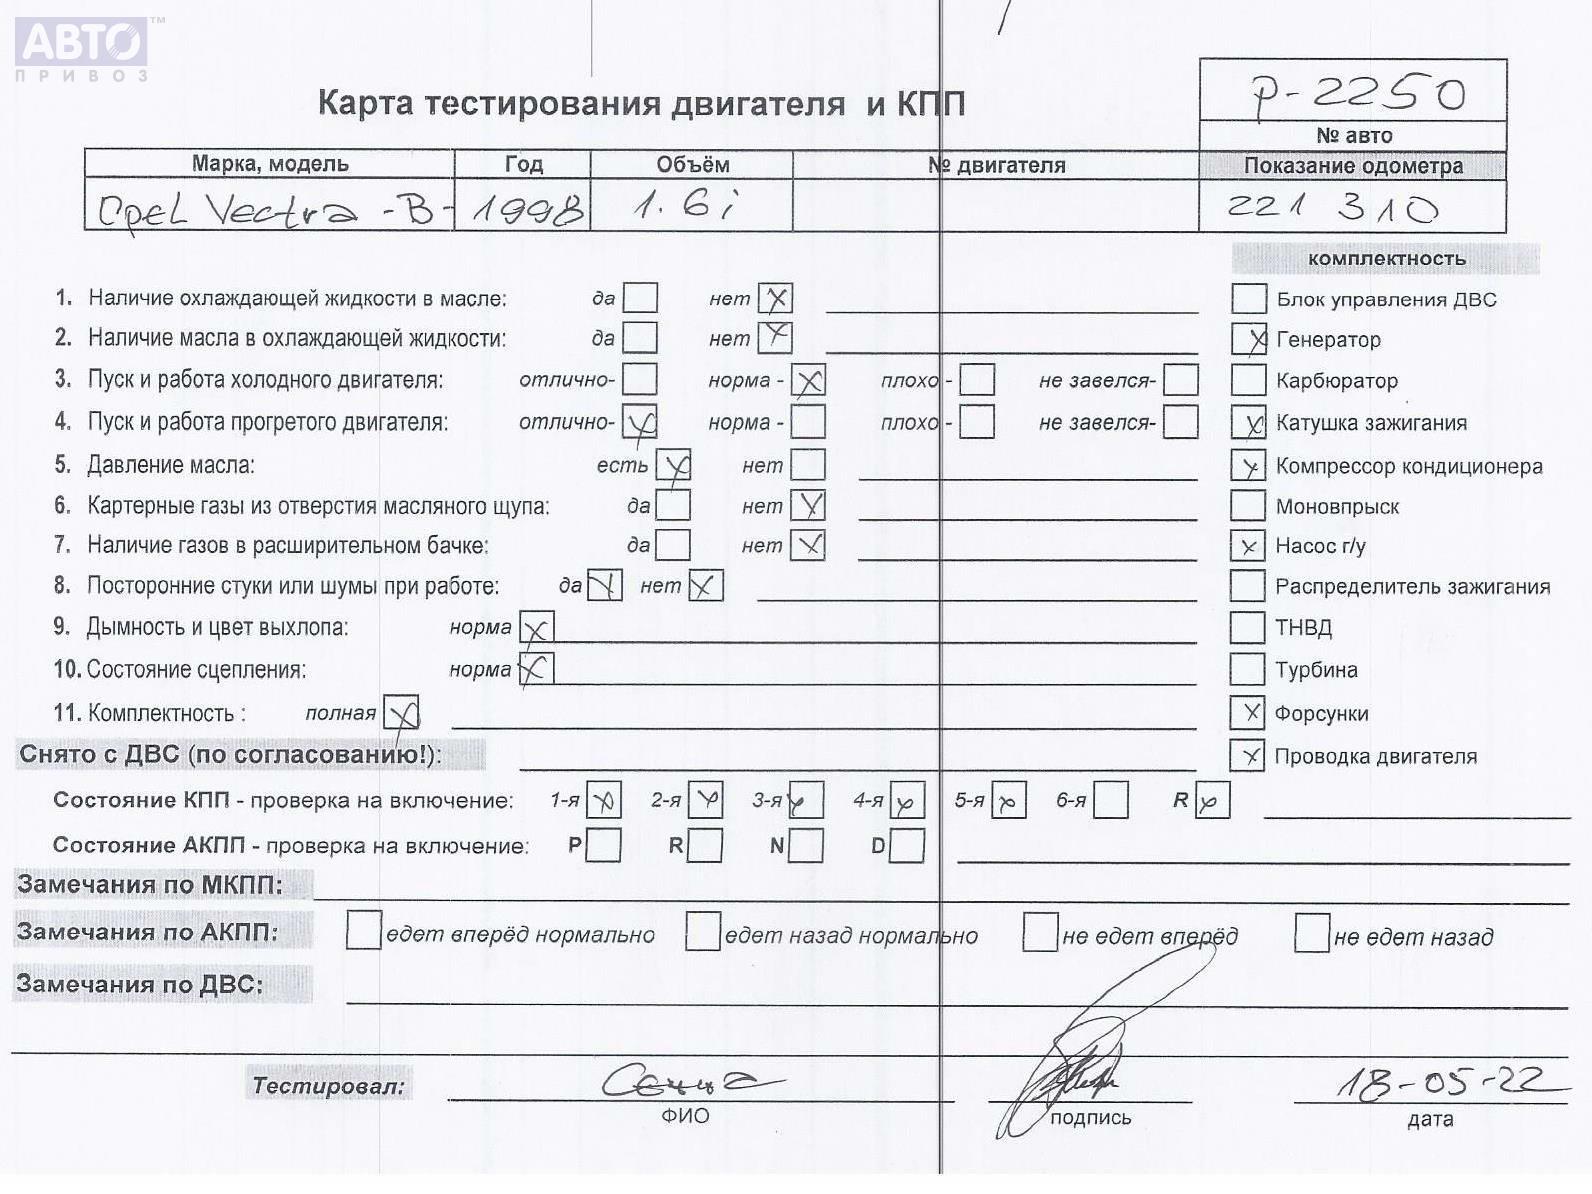 АВТО™
ПРИВОЗ
Карта тестирования двигателя и КПП
р-2250
№ авто
Марка, модель Год Объём № двигателя Показание одометра
Opel Vectra -B- 1998 1.6i 221 310
комплектность
1. Наличие охлаждающей жидкости в масле: да нет X Блок управления ДВС
2. Наличие масла в охлаждающей жидкости: да нет X X Генератор
3. Пуск и работа холодного двигателя: отлично- норма - X плохо - не завелся- Карбюратор
4. Пуск и работа прогретого двигателя: отлично- X норма - плохо - не завелся- X Катушка зажигания
5. Давление масла: есть X нет X Компрессор кондиционера
6. Картерные газы из отверстия масляного щупа: да нет X Моновпрыск
7. Наличие газов в расширительном бачке: да нет X X Насос г/у
8. Посторонние стуки или шумы при работе: да X нет X Распределитель зажигания
9. Дымность и цвет выхлопа: норма X ТНВД
10. Состояние сцепления: норма X Турбина
11. Комплектность : полная X X Форсунки
Снято с ДВС (по согласованию!): X Проводка двигателя
Состояние КПП - проверка на включение: 1-я X 2-я X 3-я X 4-я X 5-я X 6-я R X
Состояние АКПП - проверка на включение: P R N D
Замечания по МКПП:
Замечания по АКПП: едет вперёд нормально едет назад нормально не едет вперёд не едет назад
Замечания по ДВС:
Тестировал: 18-05-22
ФИО подпись дата